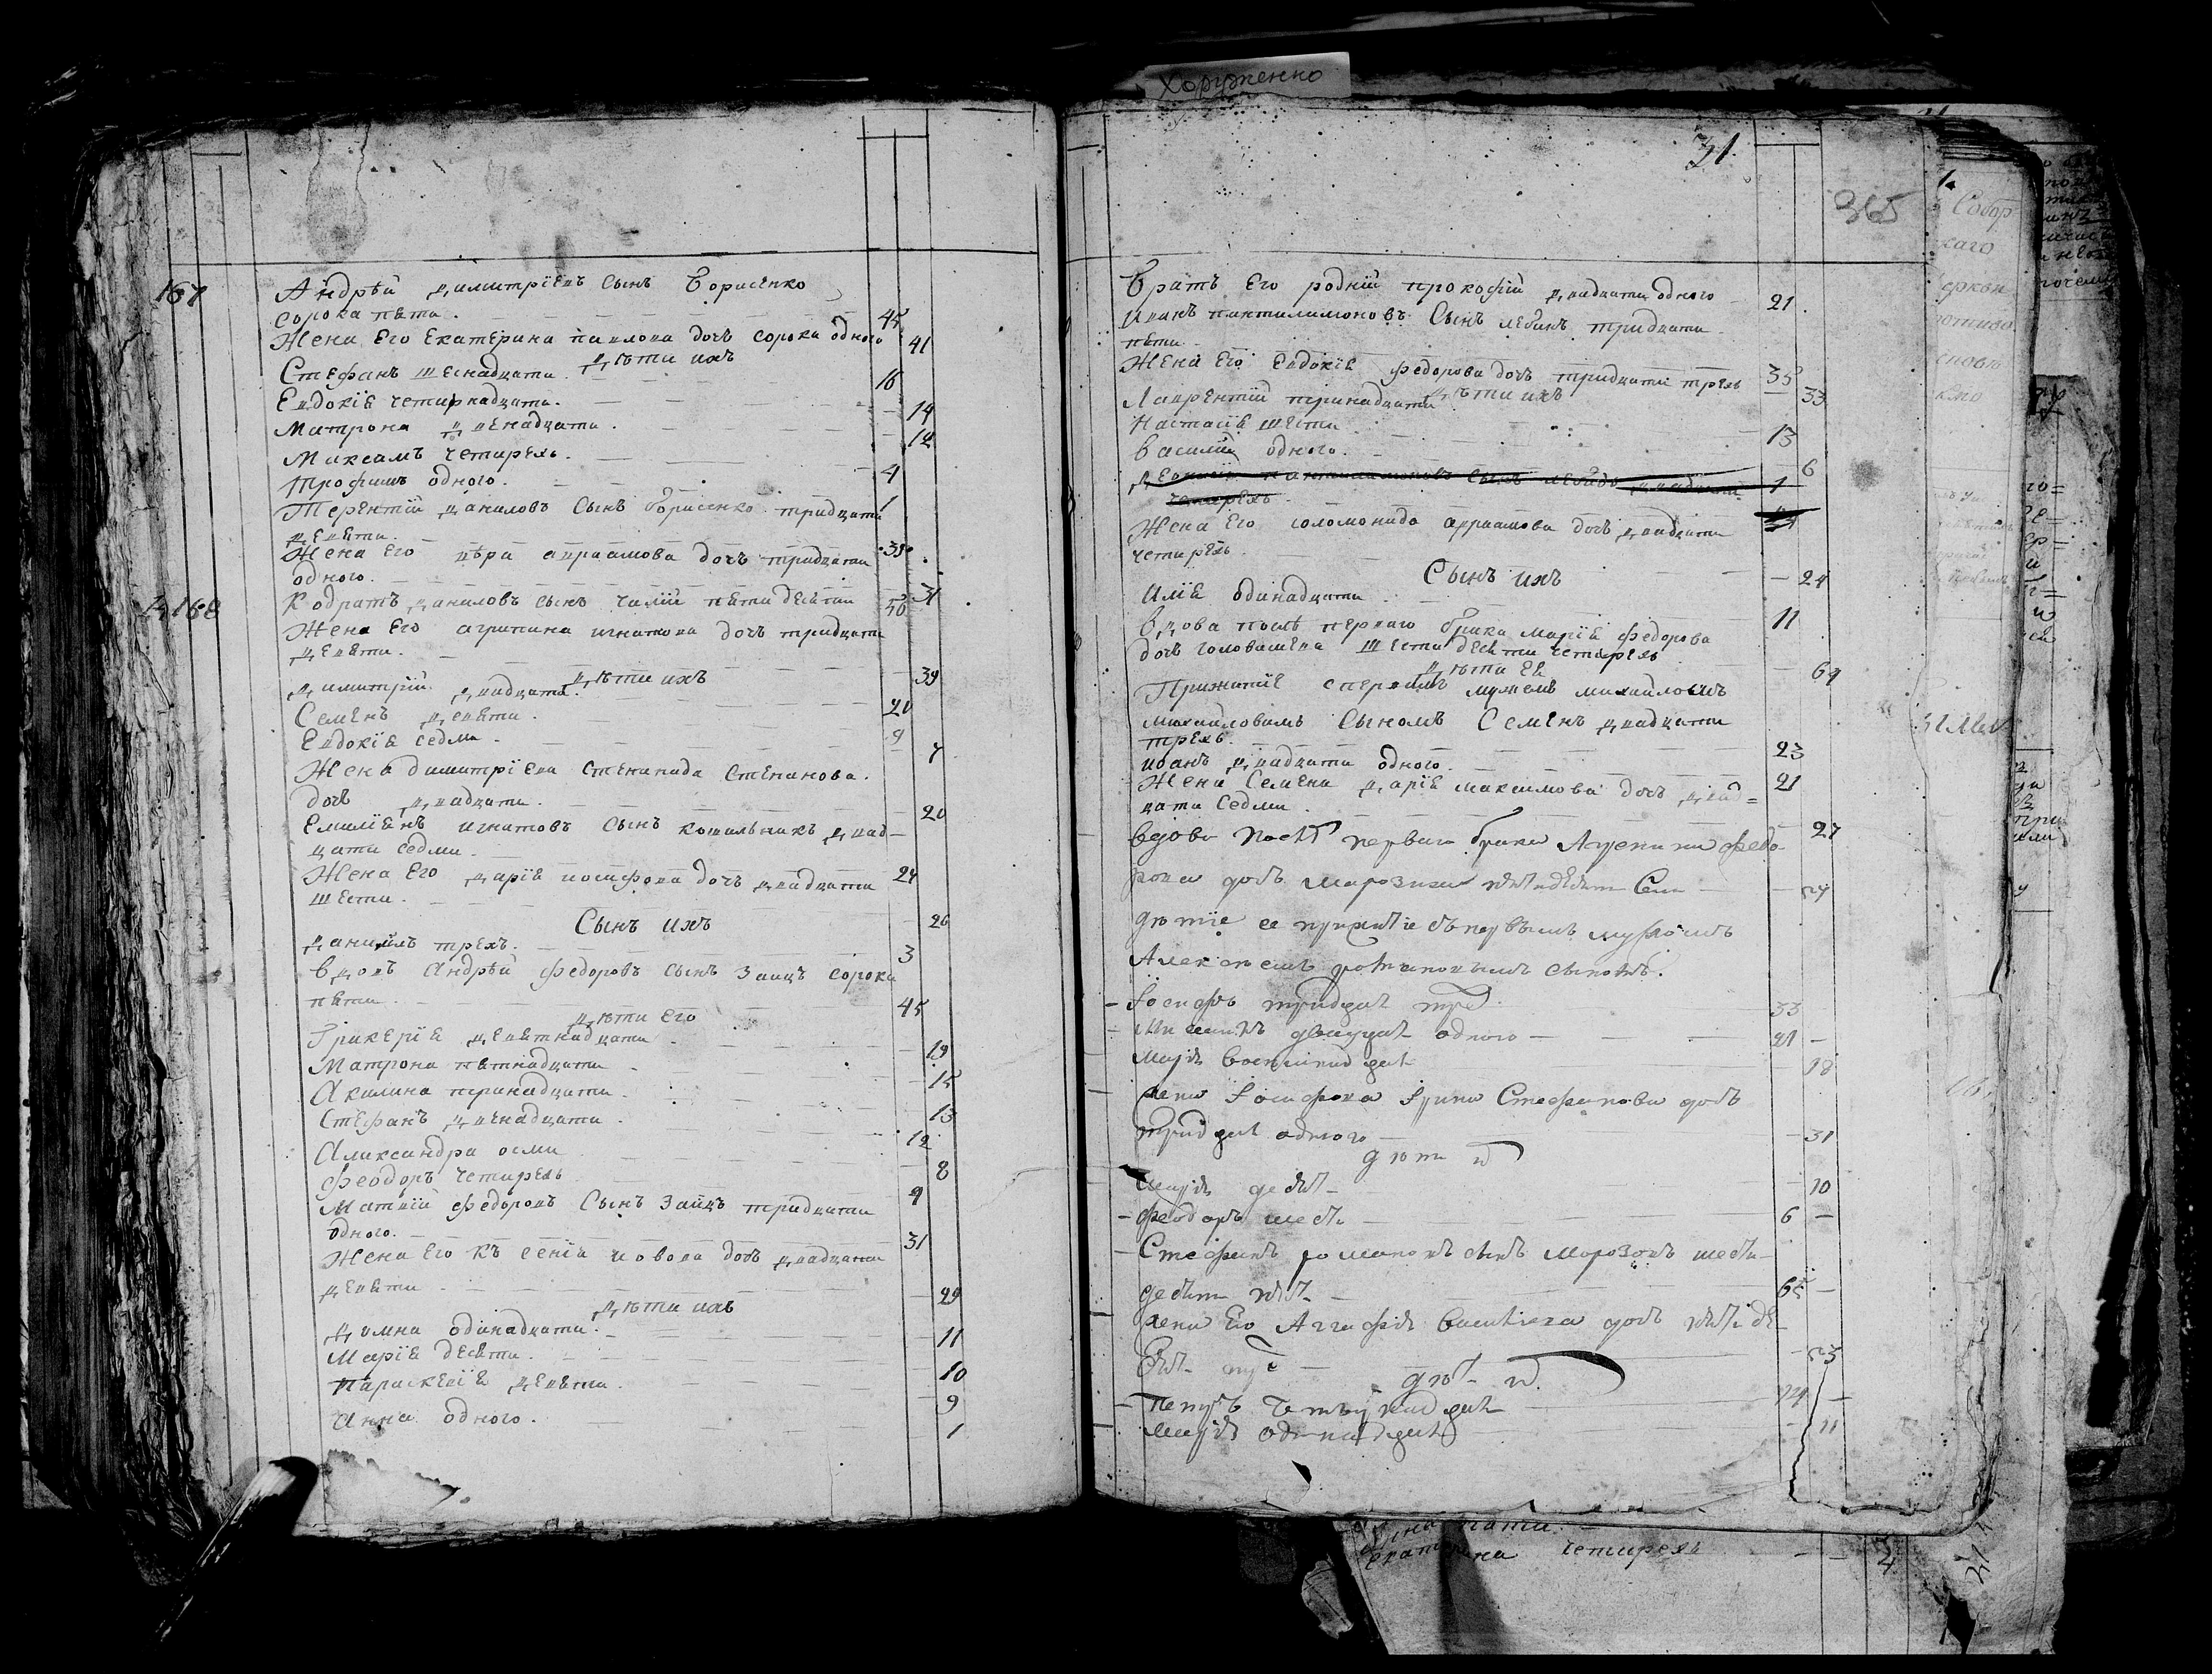 Хоруженко
167
Андрѣй Димитрїевъ Сынъ Борисенко
сорока пяти. 45
Жена Его Екатерина павлова дочь сорока одного 41
Дѣти ихъ
Стефанъ шеснадцати. 16
Евдокїя четирнадцати. 14
Матрона двенадцати. 12
Максимъ четирехъ. 4
Трофимъ одного. 1
Терентїй Даниловъ Сынъ борисенко тридцати
девяти. 39
Жена Его вѣра авраамова дочь тридцати
одного. 31
168
Кодратъ Даниловъ сынъ чалїй пятидесяти 50
Жена Его агрипина игнатова дочь тридцати
девяти. 39
Дѣти ихъ
Димитрїй двадцати. 20
Семенъ девяти. 9
Евдокїя седми. 7
Жена димитрїева степанида степанова.
дочь двадцати. 20
Емилїянъ игнатовъ сынъ кошельникъ двад-
цати седми. 27
Жена Его дарїя иосифова дочь двадцати
шести. 26
Сынъ ихъ
Данїилъ трехъ. 3
вдовъ андрѣй федоровъ сынъ заицъ сорока
пяти. 45
Дѣти Его
Гликерїя девятнадцати 19
Матрона пятнадцати 15
Акилина тринадцати. 13
Стефанъ двенадцати. 12
Александра осми 8
феодоръ четирехъ 4
Матвїй федоровъ Сынъ заицъ тридцати
одного. 31
Жена Его къ сенїа дочь двадцати
девяти 29
Дѣти ихъ
Димна одинадцати. 11
Марїя десяти. 10
параскевїя девяти. 9
Анна одного. 1
31.
365
братъ Его роднїй прокофїй двадцати одного 21
Иванъ пантилимоновъ Сынъ лебикъ тридцати
пяти. 35
Жена Его Евдокїя федорова дочь тридцати трехъ 33
Дѣти ихъ
Лаврентїй тринадцати 13
Настасїя шести 6
василїй одного. 1
пантилимоновъ сынъ
четирехъ
Жена Его соломонида авраамова дочь двадцати
четирехъ 24
Сынъ ихъ
Илїя одинадцати 11
вдова послѣ перваго брака марїя федорова
дочь головашева шестидесяти четирехъ 64
Дѣти Ея
Прижитїе спервимъ мужемъ михаиломъ
михаиловимъ сыномъ Семенъ двадцати
трехъ. 23
иванъ двадцати одного. 21
Жена Семена дарїя максимова дочь двад=
цати седми. 27
вдова послѣ перваго брака Агрепина федо-
рова дочь марозиха пятидесяти Семи
дѣтїе ее прижитїе съпервымъ мужомъ
Алексѣемъ романовымъ сыномъ.
Іосифъ тридцати трех. 33
двадцати одного 21
Марїя восемнадцати 18
жена Іосифова Ірина Стефанова дочь
тридцати одного 31
дѣти их
Марїя десяти 10
феодоръ шести 6
Стефанъ романовъ сынъ морозовъ шести-
десяти пяти 65
жена Его Агафїя Василїева дочь пятиде
сяти трех 53
дѣти их.
Петръ четырнадцати 14
Марїя одинадцати 11
пяти.
Екатерина четирехъ 4